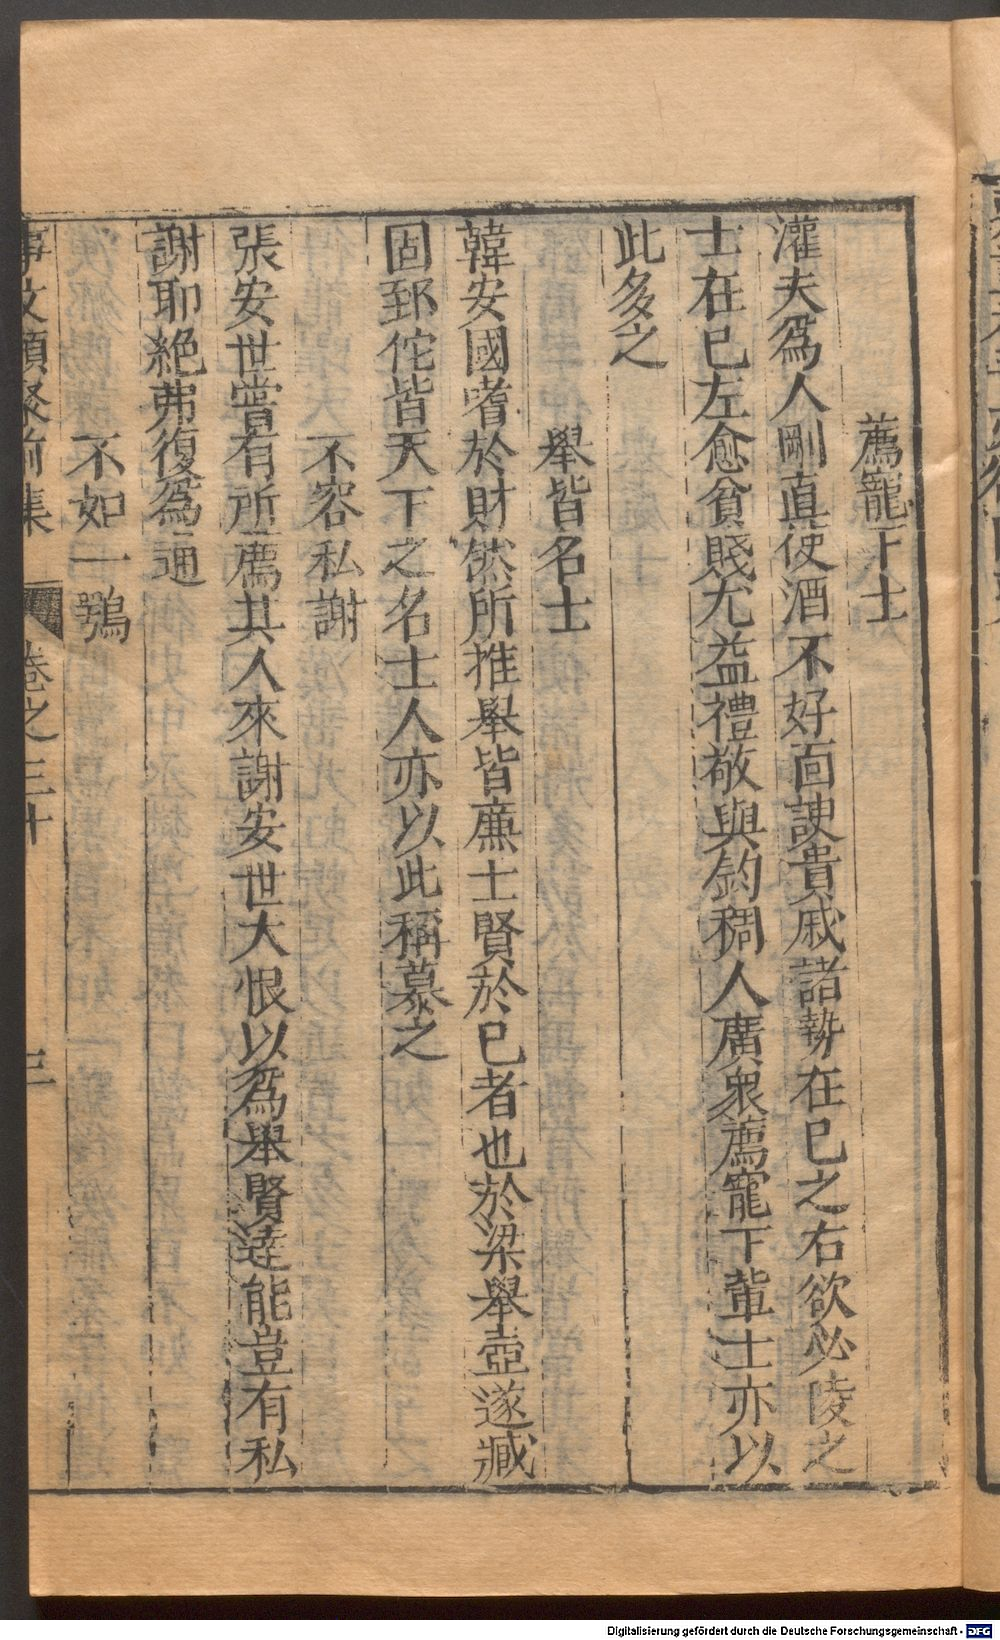 薦寵下士
灌夫爲人剛直使酒不好面諛貴戚諸勢在已之右欲必陵之
士在已左愈貧賤尤益禮敬與鈞稠人廣衆薦寵下輩士亦以
此多之
舉皆名士
韓安國嗜於財然所推舉皆廉士賢於已者也於梁舉壺遂臧
固郅佗皆天下之名士人亦以此稱慕之
不容私謝
張安世嘗有所薦其人來謝安世大恨以爲舉賢達能豈有私
謝耶絶弗復爲通
不如一鶚
事文類聚前集 卷之三十
Digitalisierung gefördert durch die Deutsche Forschungsgemeinschaft - DFG